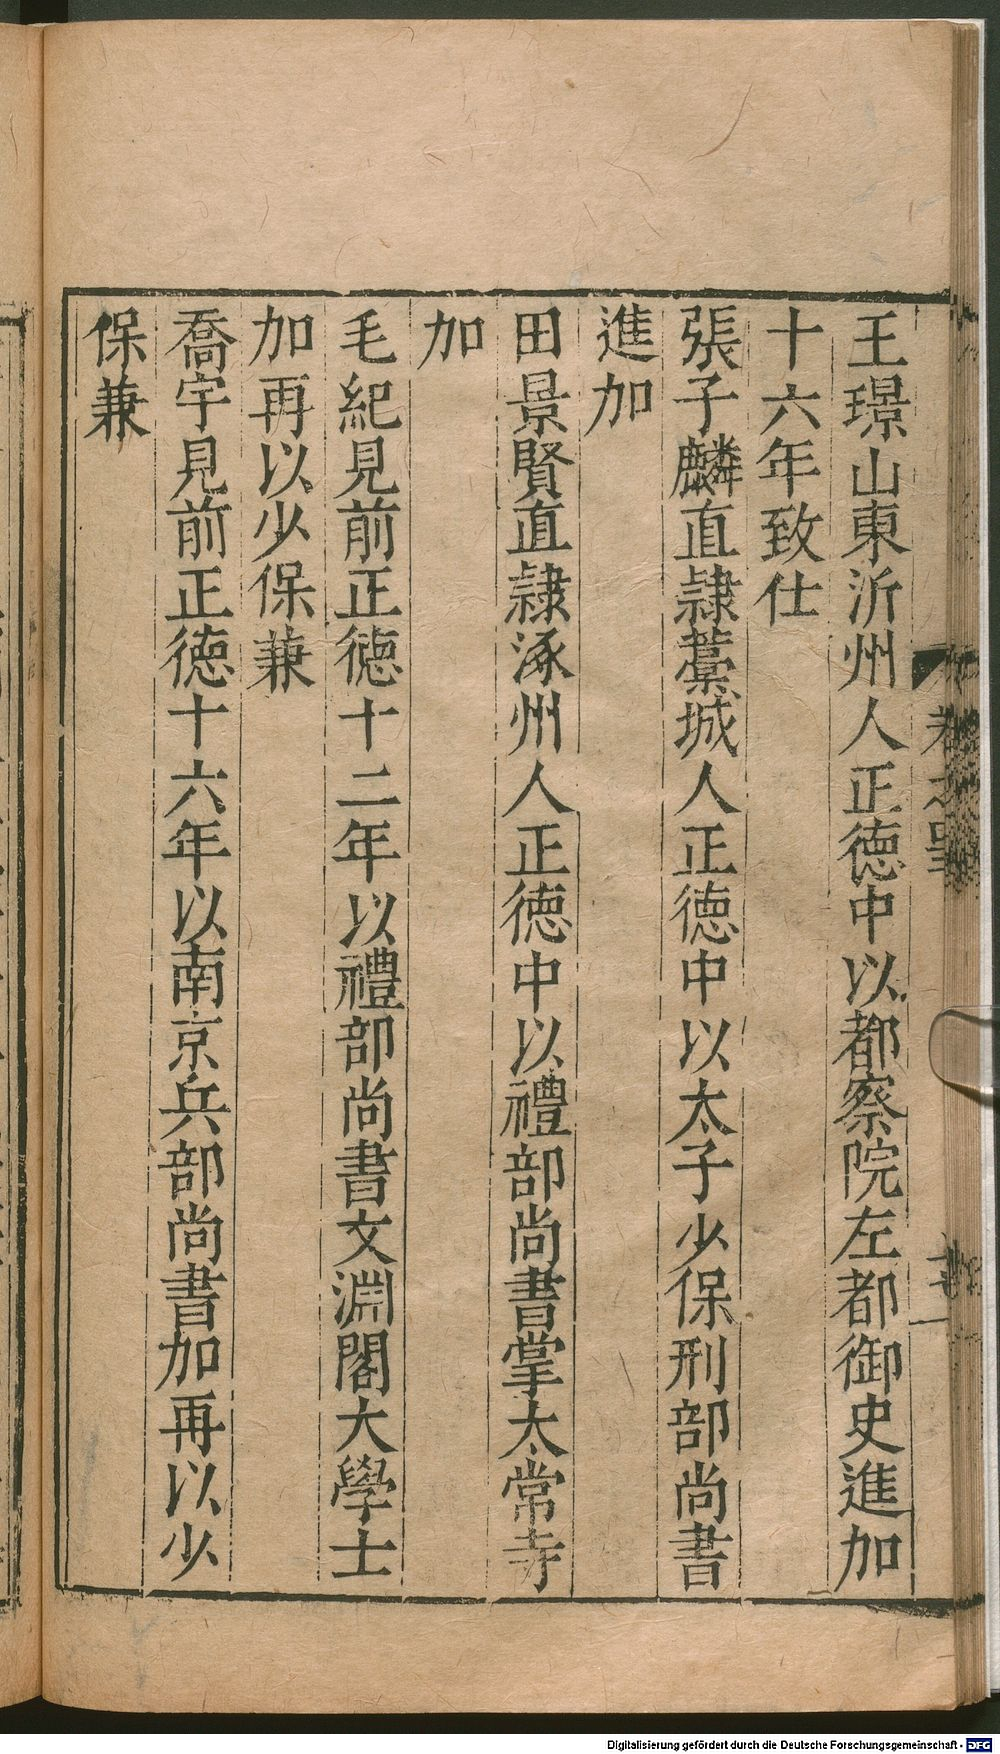 王璟山東沂州人正德中以都察院左都御史進加
十六年致仕
張子麟直隷藁城人正德中以太子少保刑部尚書
進加
田景賢直隷涿州人正德中以禮部尚書掌太常寺
加
毛紀見前正德十二年以禮部尚書文淵閣大學士
加再以少保兼
喬宇見前正德十六年以南京兵部尚書加再以少
保兼
Digitalisierung gefördert durch die Deutsche Forschungsgemeinschaft - DFG